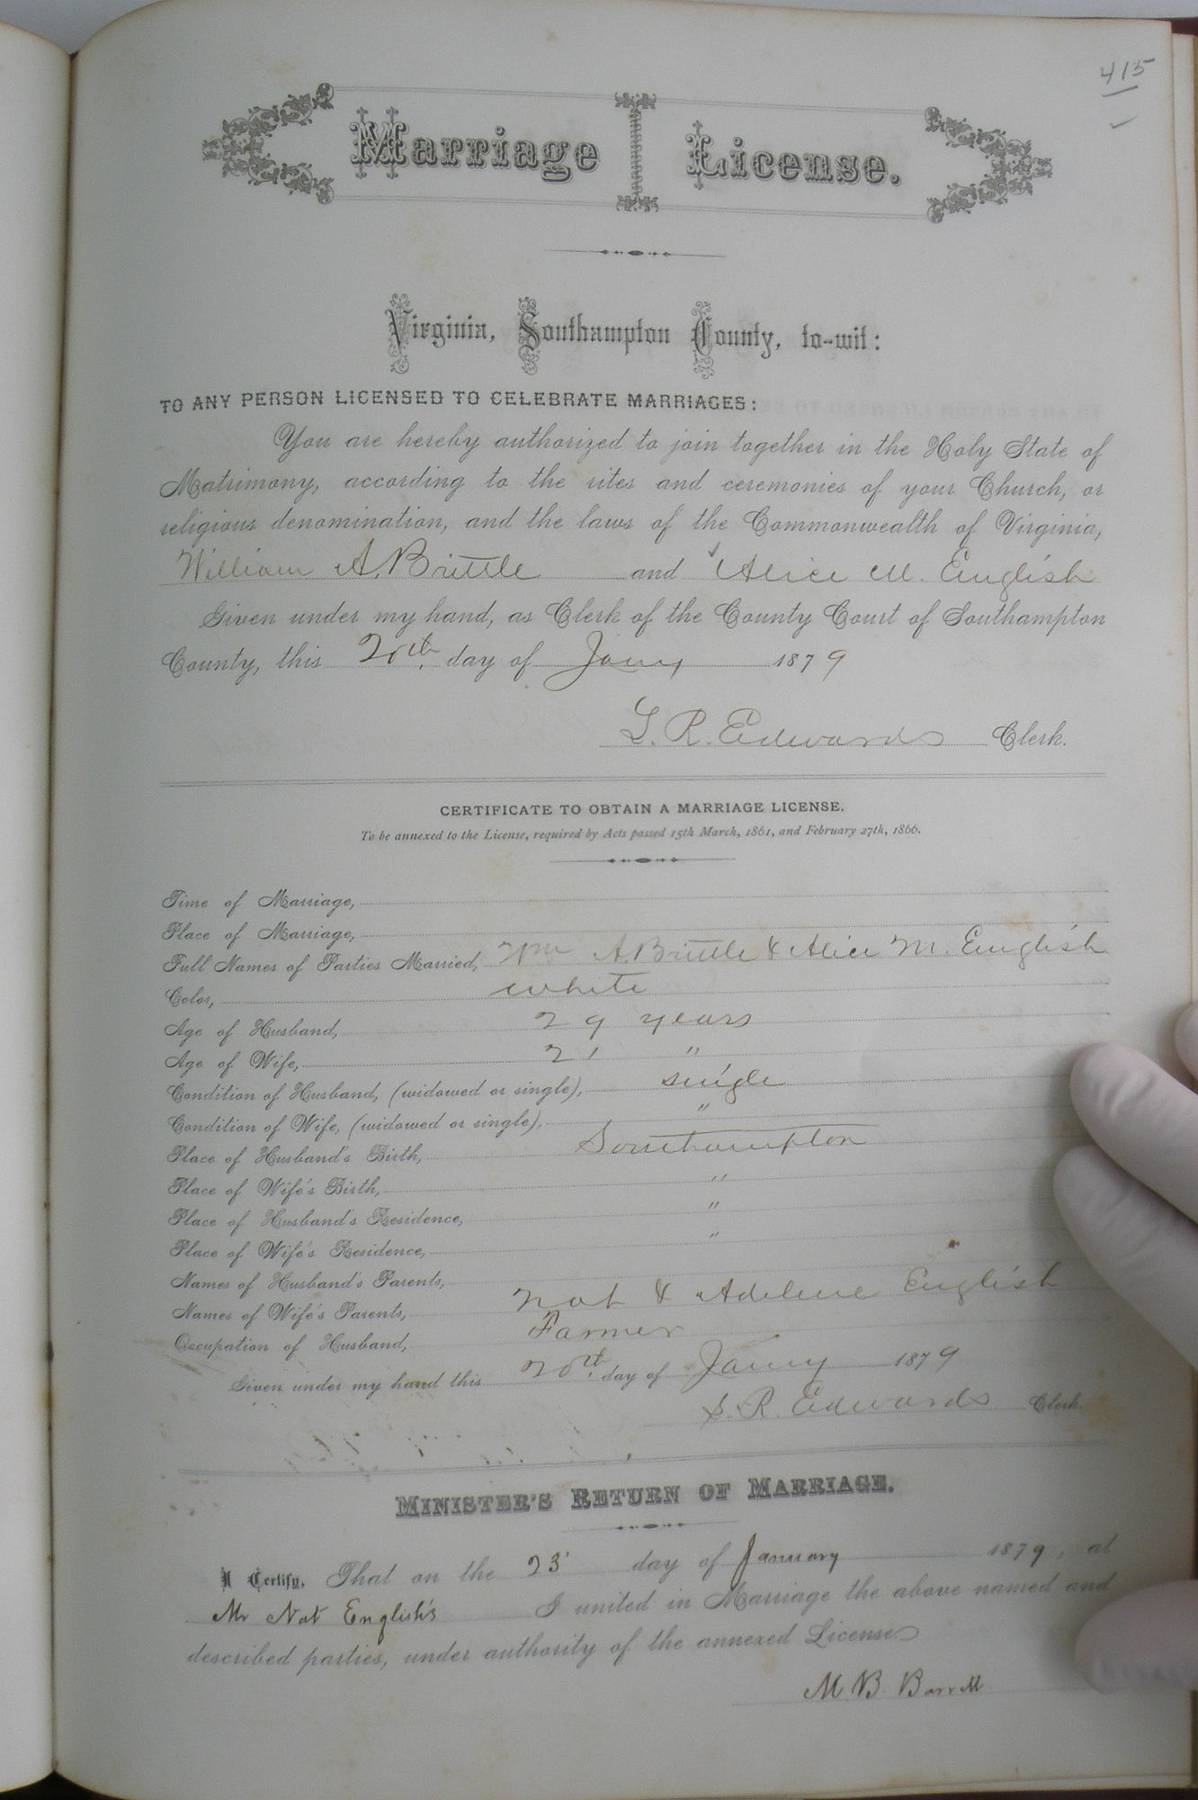 415
Marriage License.
Virginia, Southampton County, to-wit:
TO ANY PERSON LICENSED TO CELEBRATE MARRIAGES:
You are hereby authorized to join together in the Holy State of
Matrimony, according to the rites and ceremonies of your Church, or
religious denomination, and the laws of the Commonwealth of Virginia,
William A. Brittle and Alice M. English
Given under my hand, as Clerk of the County Court of Southampton
County, this 20th day of Jany 1879
L. R. Edwards Clerk.
CERTIFICATE TO OBTAIN A MARRIAGE LICENSE.
To be annexed to the License, required by Acts passed 15th March, 1861, and February 27th, 1866.
Time of Marriage,
Place of Marriage,
Full Names of Parties Married, Wm A. Brittle & Alice M. English
Color, white
Age of Husband, 29 years
Age of Wife, 21 "
Condition of Husband, (widowed or single), single
Condition of Wife, (widowed or single), "
Place of Husband's Birth, Southampton
Place of Wife's Birth, "
Place of Husband's Residence, "
Place of Wife's Residence, "
Names of Husband's Parents,
Names of Wife's Parents, Nat & Adeline English
Occupation of Husband, Farmer
Given under my hand this 20th day of Jany 1879
L. R. Edwards Clerk.
MINISTER'S RETURN OF MARRIAGE.
I Certify, That on the 23 day of January 1879, at
Mr Nat English's I united in Marriage the above named and
described parties, under authority of the annexed License
M. B. Barrett